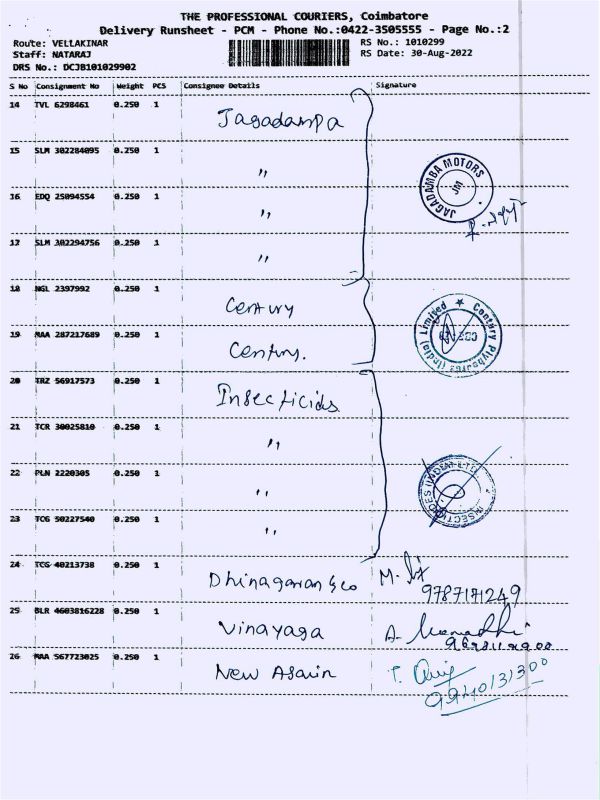 THE PROFESSIONAL COURIERS, Coimbatore
Delivery Runsheet - PCM - Phone No.:0422-3505555 - Page No.:2
Route: VELLAKINAR RS No.: 1010299
Staff: NATARAJ RS Date: 30-Aug-2022
DRS No.: DCJB101029902
S No Consignment No Weight PCS Consignee Details Signature
14 TVL 6298461 0.250 1 Jagadampa
15 SLM 302284095 0.250 1 "
JAGADAMBA MOTORS
JM
16 EDQ 25094554 0.250 1 "
17 SLM 302294756 0.250 1 "
18 NGL 2397992 0.250 1 Century
Century Plyboards (India) Limited
19 MAA 287217689 0.250 1 Century.
20 TRZ 56917573 0.250 1 Insecticids
21 TCR 30025810 0.250 1 "
22 PLN 2220305 0.250 1 "
INSECTICIDES (INDIA) LTD
23 TCG 50227540 0.250 1 "
24 TCG 40213738 0.250 1 Dhinagaran &co M.
9787171249
25 BLR 4603816228 0.250 1 Vinayaga A.
26 MAA 567723025 0.250 1 New Asain T.
9940131300